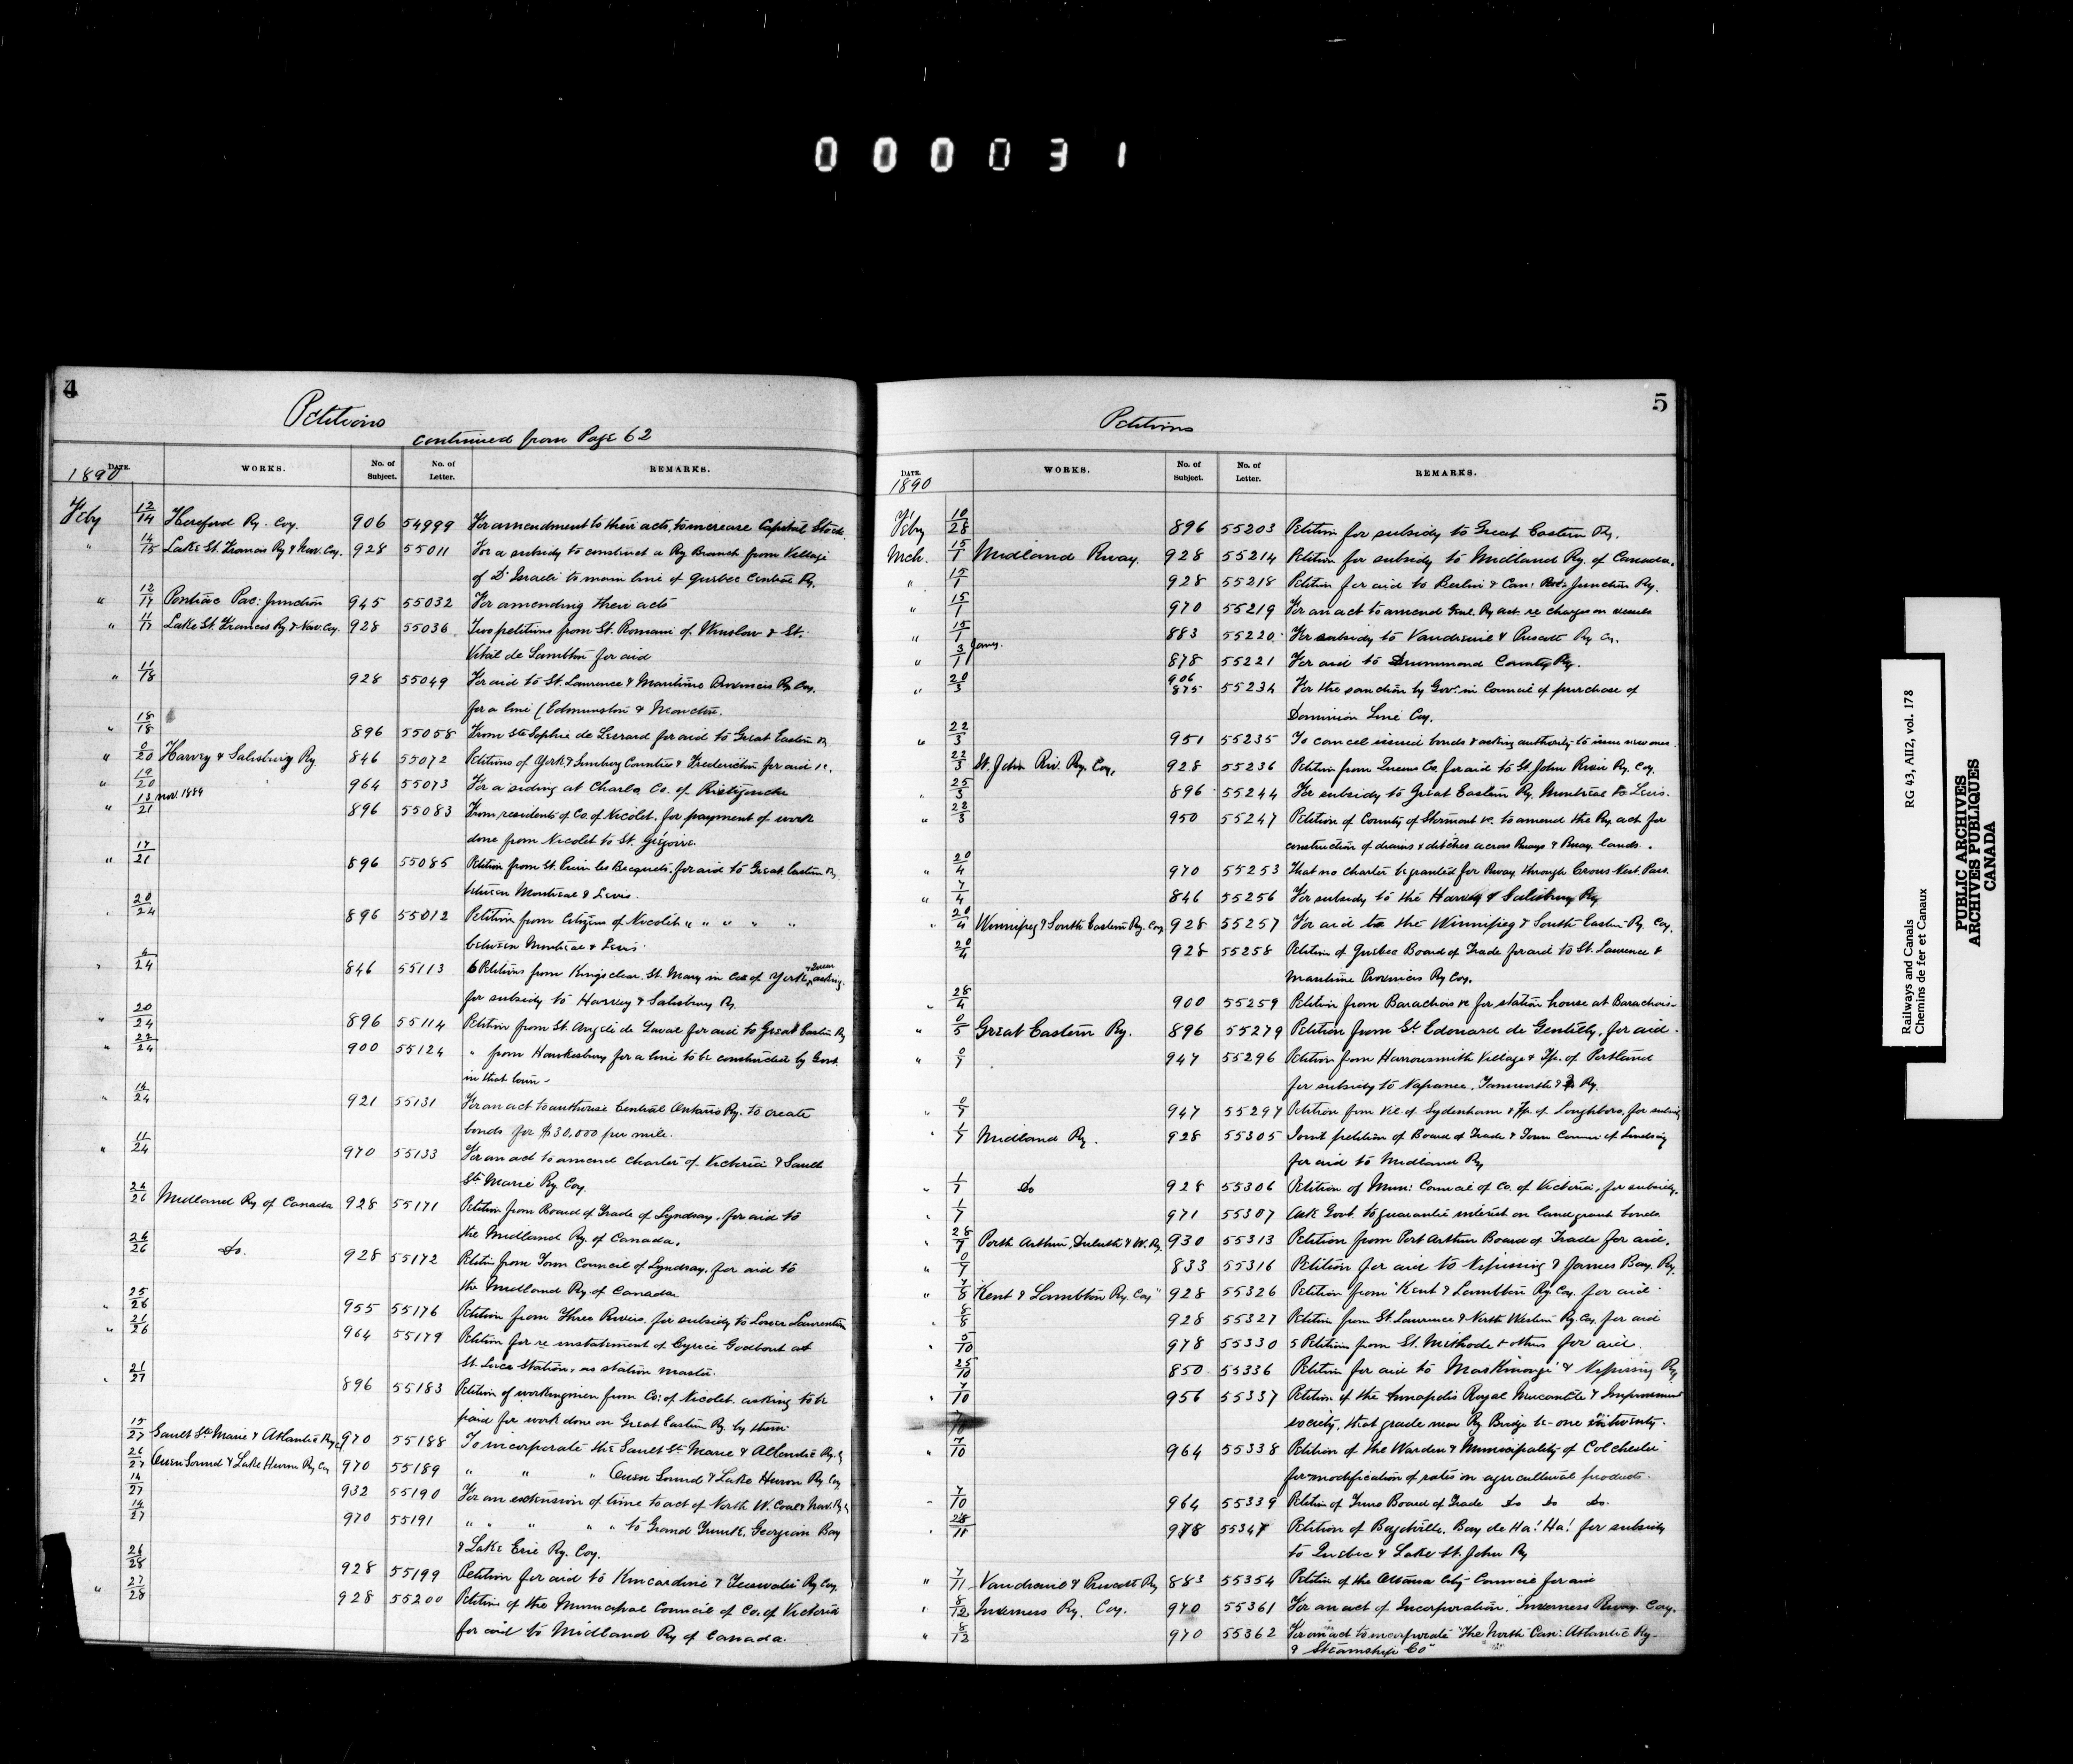 000031
4
Petitions
continued from Page 62
DATE. WORKS. No. of Subject. No. of Letter. REMARKS.
1890
Feby 12/14 Hereford Ry. Coy. 906 54999 For amendment to their acts, to increase Capital Stock.
" 14/15 Lake St. Francis Ry & Nav. Coy. 928 55011 For a subsidy to construct a Ry Branch from Village
of D'Israeli to main line of Quebec Central Ry.
" 12/17 Pontiac Pac: Junction 945 55032 For amending their acts
" 11/17 Lake St. Francis Ry & Nav. Coy. 928 55036 Two petitions from St. Romain of Winslow & St.
Vital de Lambton for aid
" 11/18 928 55049 For aid to St. Lawrence & Maritime Provinces Ry Coy.
for a line (Edmunston & Moncton.
" 18/18 896 55058 From Ste Sophie de Levrard for aid to Great Eastern Ry
" 0/20 Harvey & Salisbury Ry. 846 55072 Petitions of York & Sunbury Counties & Fredericton for aid &c.
" 19/20 964 55073 For a siding at Charlo Co. of Ristigouche
" 13/21 Nov. 1889 896 55083 From residents of Co. of Nicolet, for payment of work
done from Nicolet to St. Grégoire.
" 17/21 896 55085 Petition from St. Pierre les Becquets, for aid to Great Eastern Ry.
between Montreal & Levis.
" 20/24 896 55012 Petition from Citizens of Nicolet " " " " "
between Montreal & Levis.
" 4/24 846 55113 6 Petitions from Kingsclear, St. Mary in Co. of York & asking
for subsidy to Harvey & Salisbury Ry.
" 20/24 896 55114 Petition from St. Angele de Laval for aid to Great Eastern Ry
" 22/24 900 55124 " from Hawkesbury for a line to be constructed by Govt.
in that town -
" 14/24 921 55131 For an act to authorise Central Ontario Ry. to create
bonds for $30,000 per mile.
" 11/24 970 55133 For an act to amend charter of Victoria & Sault
Ste Marie Ry Coy.
26/26 Midland Ry of Canada 928 55171 Petition from Board of Trade of Lyndsay, for aid to
the Midland Ry. of Canada.
26/26 Do. 928 55172 Petition from Town Council of Lyndsay, for aid to
the Midland Ry. of Canada
" 25/26 955 55176 Petition from Three Rivers, for subsidy to Lower Laurentian
" 21/26 964 55179 Petition for re instatement of Cyrice Godbout at
St. Luce Station, as station master.
" 21/27 896 55183 Petition of workingmen from Co: of Nicolet asking to be
paid for work done on Great Eastern Ry. by them.
15/27 Sault Ste Marie & Atlantic Ry C 970 55188 To incorporate the Sault Ste Marie & Atlantic Ry. C
26/27 Owen Sound & Lake Huron Ry Coy 970 55189 " " " Owen Sound & Lake Huron Ry Coy
14/27 932 55190 For an extension of time to act of North W. Coal & Nav. Ry C
14/27 970 55191 " " " " " to Grand Trunk, Georgian Bay
& Lake Erie Ry. Coy.
26/28 928 55199 Petition for aid to Kincardine & Teeswater Ry Coy.
" 27/28 928 55200 Petition of the Municipal Council of Co. of Victoria
for aid to Midland Ry of Canada.
5
Petitions
DATE. WORKS. No. of Subject. No. of Letter. REMARKS.
1890
Feby 10/28 896 55203 Petition for subsidy to Great Eastern Ry.
Mch. 15/1 Midland Rway. 928 55214 Petition for subsidy to Midland Ry. of Canada.
" 15/1 928 55218 Petition for aid to Berlin & Can: Pac. Junction Ry.
" 15/1 970 55219 For an act to amend Genl. Ry act re charges on
" 15/1 883 55220 For subsidy to Vaudreuil & Prescott Ry Co.
" 3/1 Jany. 878 55221 For aid to Drummond County Ry.
" 20/3 906 875 55234 For the sanction by Govr. in Council of purchase of
Dominion Line Coy.
" 22/3 951 55235 To cancel issued bonds & asking authority to issue new ones.
22/3 St. John Riv. Ry. Coy. 928 55236 Petition from Queens Co. for aid to St. John River Ry. Coy.
" 25/3 896 55244 For subsidy to Great Eastern Ry. Montreal to Levis.
" 22/3 950 55247 Petition of County of Stormont &c. to amend the Ry. act for
construction of drains & ditches across Rways & Rway. lands.
" 20/4 970 55253 That no charter be granted for Rway. through Crows Nest Pass.
" 7/4 846 55256 For subsidy to the Harvey & Salisbury Ry
" 20/4 Winnipeg & South Eastern Ry. Coy 928 55257 For aid to the Winnipeg & South Eastern Ry. Coy.
20/4 928 55258 Petition of Quebec Board of Trade for aid to St. Lawrence &
Maritime Provinces Ry Coy.
" 28/4 900 55259 Petition from Barachois &c for station house at Barachois -
" 0/5 Great Eastern Ry. 896 55279 Petition from St Edouard de Gentilly, for aid -
" 0/7 947 55296 Petition from Harrowsmith Village & Tp. of Portland
for subsidy to Napanee, Tamworth & Q Ry.
" 0/7 947 55297 Petition from Vil. of Sydenham & Tp. of Loughboro, for subsidy
" 1/7 Midland Ry. 928 55305 Joint petition of Board of Trade & Town Council of Lindsay
for aid to Midland Ry
" 1/7 Do 928 55306 Petition of Mun: Council of Co. of Victoria, for subsidy.
" 1/7 971 55307 Ask Govt. to guarantee interest on land grant bonds
" 28/7 Port Arthur, Duluth & W. Ry. 930 55313 Petition from Port Arthur Board of Trade for aid.
" 0/7 833 55316 Petition for aid to Nipissing & James Bay. Ry.
" 7/8 "Kent & Lambton Ry. Coy" 928 55326 Petition from "Kent & Lambton Ry. Coy. for aid.
" 8/8 928 55327 Petition from St. Lawrence & North Western Ry. Coy. for aid
" 5/10 978 55330 5 Petitions from St. Methode & others for aid.
25/10 850 55336 Petition for aid to Maskinongé & Nipissing Ry.
" 7/10 956 55337 Petition of the Annapolis Royal Mercantile & Improvement
society, that grade near Ry Bridge be one in twenty.
" 7/10 964 55338 Petition of the Warden & Municipality of Colchester
for modification of rates on agricultural products.
- 7/10 964 55339 Petition of Truro Board of Trade Do Do Do.
" 28/11 978 55347 Petition of Bagotville, Bay de Ha! Ha! for subsidy
to Quebec & Lake St. John Ry
" 7/11 Vaudreuil & Prescott Ry 883 55354 Petition of the Ottawa City Council for aid
" 8/12 Inverness Ry. Coy. 970 55361 For an act of Incorporation. "Inverness Rway. Coy.
" 8/12 970 55362 For an act to incorporate "The North Can: Atlantic Ry.
& Steamship Co"
Railways and Canals RG 43, AII2, vol. 178
Chemins de fer et Canaux
PUBLIC ARCHIVES
ARCHIVES PUBLIQUES
CANADA